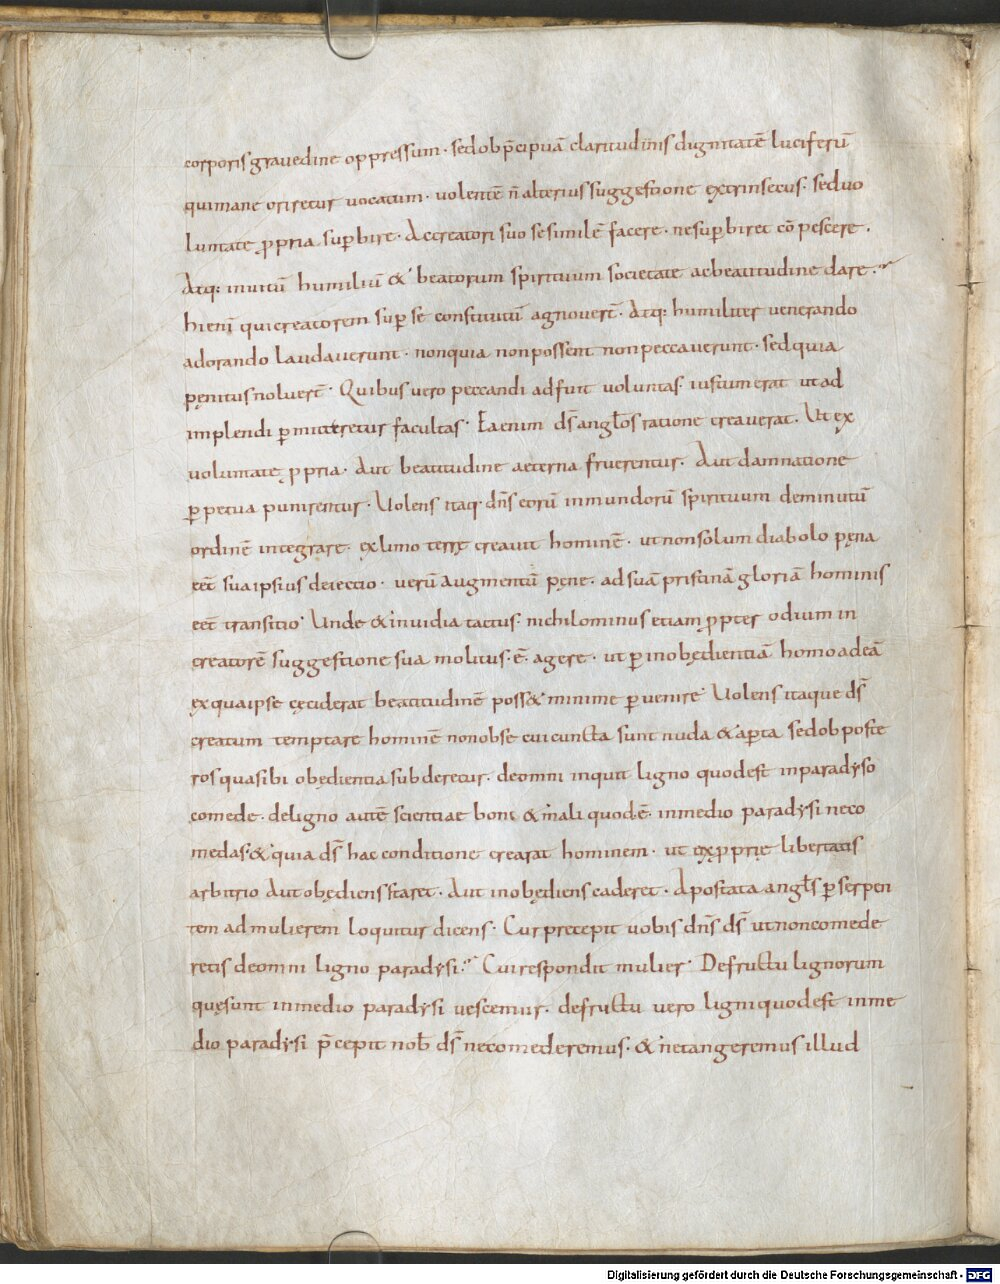 corporis grauedine oppressum · sed ob p̄cipuā claritudinis dignitatē luciferū
qui mane oriretur uocatum · uolentē n̄ alterius suggestione extrinsecus · sed uo
luntate ꝓpria suꝑbire · Ac creatori suo se similē facere · ne suꝑbiret cōpescere ·
Atq: inuitū humiliū & beatorum spirituum societate ac beatitudine dare ·
hi eni qui creatorem suꝑ se constitutū agnouer̄t · Atq: humiliter uenerando
adorando laudauerunt · non quia non possent non peccauerunt · sed quia
pęnitus noluer̄t · Quibus uero peccandi adfuit uoluntas · iustum erat ut ad
implendi ꝑmitteretur facultas · Ea enim ds̄ angłos ratione creauerat · Ut ex
uoluntate ꝓpria · Aut beatitudine aeterna fruerentur · Aut damnatione
ꝑpetua punirentur · Uolens itaq· dn̄s eorū inmundorū spirituum deminutū
ordinē integrare · ex limo terrę creauit hominē · ut non solum diabolo pęna
eēt sua ipsius deiectio · uerū augmentū pęnę · ad suā pristinā gloriā hominis
eēt transitio · Unde & inuidia tactus · nichilominus etiam ꝓpter odium in
creatorē suggestione sua molitus · ē · agere · ut ꝑ inobędientiā homo ad eā
ex qua ipse ceciderat beatitudinē poss& minime ꝑuenire · Uolens itaque ds̄
creatum temptare hominē non ob se cui cuncta sunt nuda & aꝑta sed ob poste
ros quasi bi obędientia subderetur · de omni inquit ligno quod est in paradyso
comede · de ligno autē scientiae boni & mali quod · ē · in medio paradysi ne co
medas · & quia ds̄ hac conditione crearat hominem · ut ex ꝓprię libertatis
arbitrio Aut obędiens staret · Aut inobędiens caderet · Apostata angłs ꝑ serpen
tem ad mulierem loquitur dicens · Cur precepit uobis dn̄s ds̄ ut non comede
retis de omni ligno paradysi · Cui respondit mulier · De fructu lignorum
quę sunt in medio paradysi uescemur · de fructu uero ligni quod est in me
dio paradysi p̄cepit nob̄ ds̄ ne comederemus · & ne tangeremus illud
Digitalisierung gefördert durch die Deutsche Forschungsgemeinschaft - DFG